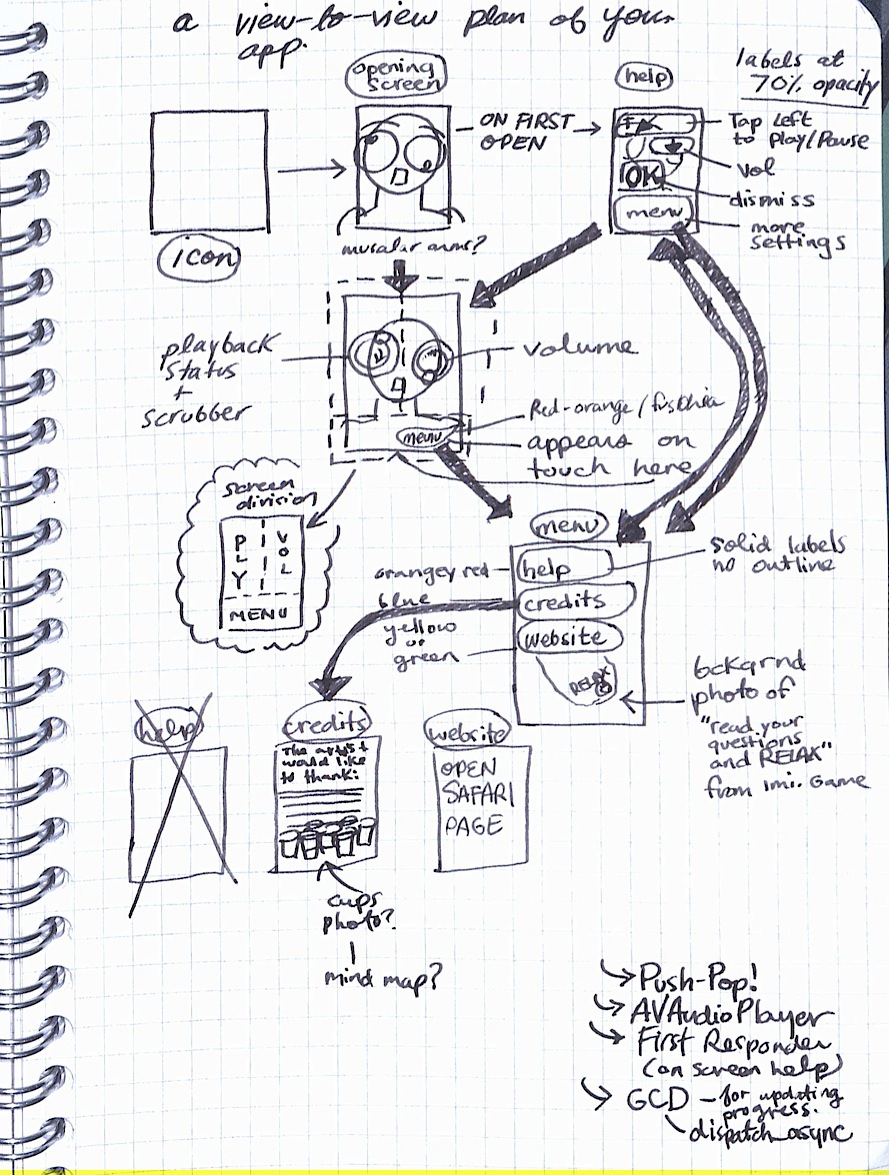 a view-to-view plan of your
app.
opening
screen
help
labels at
70% opacity
ON FIRST
OPEN
Tap Left
to Play/Pause
Vol
OK
dismiss
menu
more
settings
icon
muscular arms?
playback
status
+
scrubber
volume
Red-orange/fuschia
menu
appears on
touch here
screen
division
PLY
VOL
MENU
menu
solid labels
no outline
orangey red
help
blue
credits
yellow
or
green
website
RELAX
bckgrnd
photo of
"read your
questions
and RELAX"
from Imi. Game
help
credits
website
The artist
would like
to thank:
OPEN
SAFARI
PAGE
cups
photo?
mind map?
Push-Pop!
AVAudioPlayer
First Responder
(on screen help)
GCD - for updating
progress.
dispatch_async